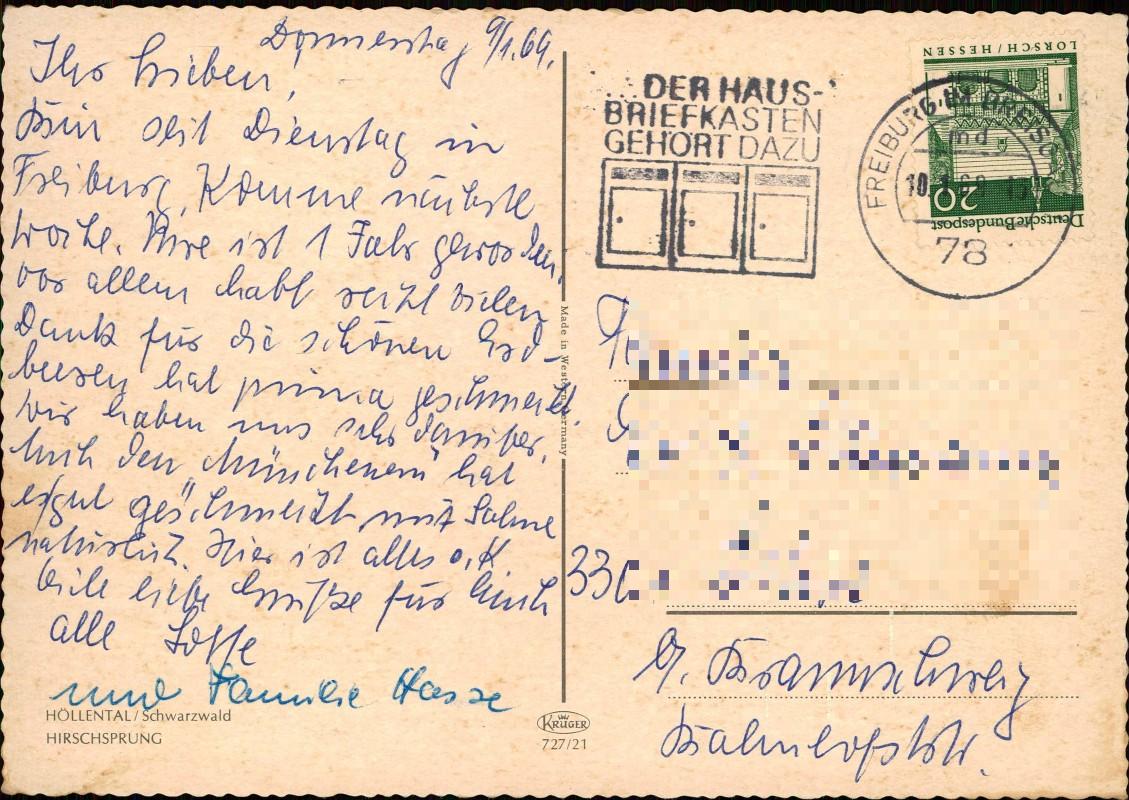 Donnerstag 9/1.69.
Ihr Lieben,
Bin seit Dienstag in
Freiburg, Komme nächste
Woche. ist 1 Jahr geworden,
vor allem habt recht vielen
Dank für die schönen Erd-
beeren hat prima geschmeckt.
Wir haben uns sehr darüber,
Auch den „Münchenern" hat
es gut geschmeckt mit Sahne
natürlich. Hier ist alles o.K.
Viele liebe Grüße für Euch
alle
und Familie Hasse
HÖLLENTAL / Schwarzwald
HIRSCHSPRUNG
Made in Western Germany
KRÜGER
727/21
DER HAUS-
BRIEFKASTEN
GEHÖRT DAZU
FREIBURG
10.1.69
78
LORSCH / HESSEN
20
Deutsche Bundespost
330
b/ Braunschweig
Bahnhofstr.